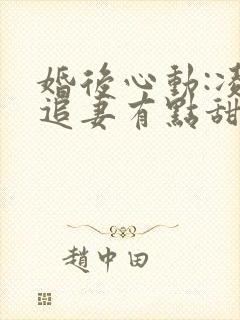 婚後心動:凌
追妻有點甜
趙中田